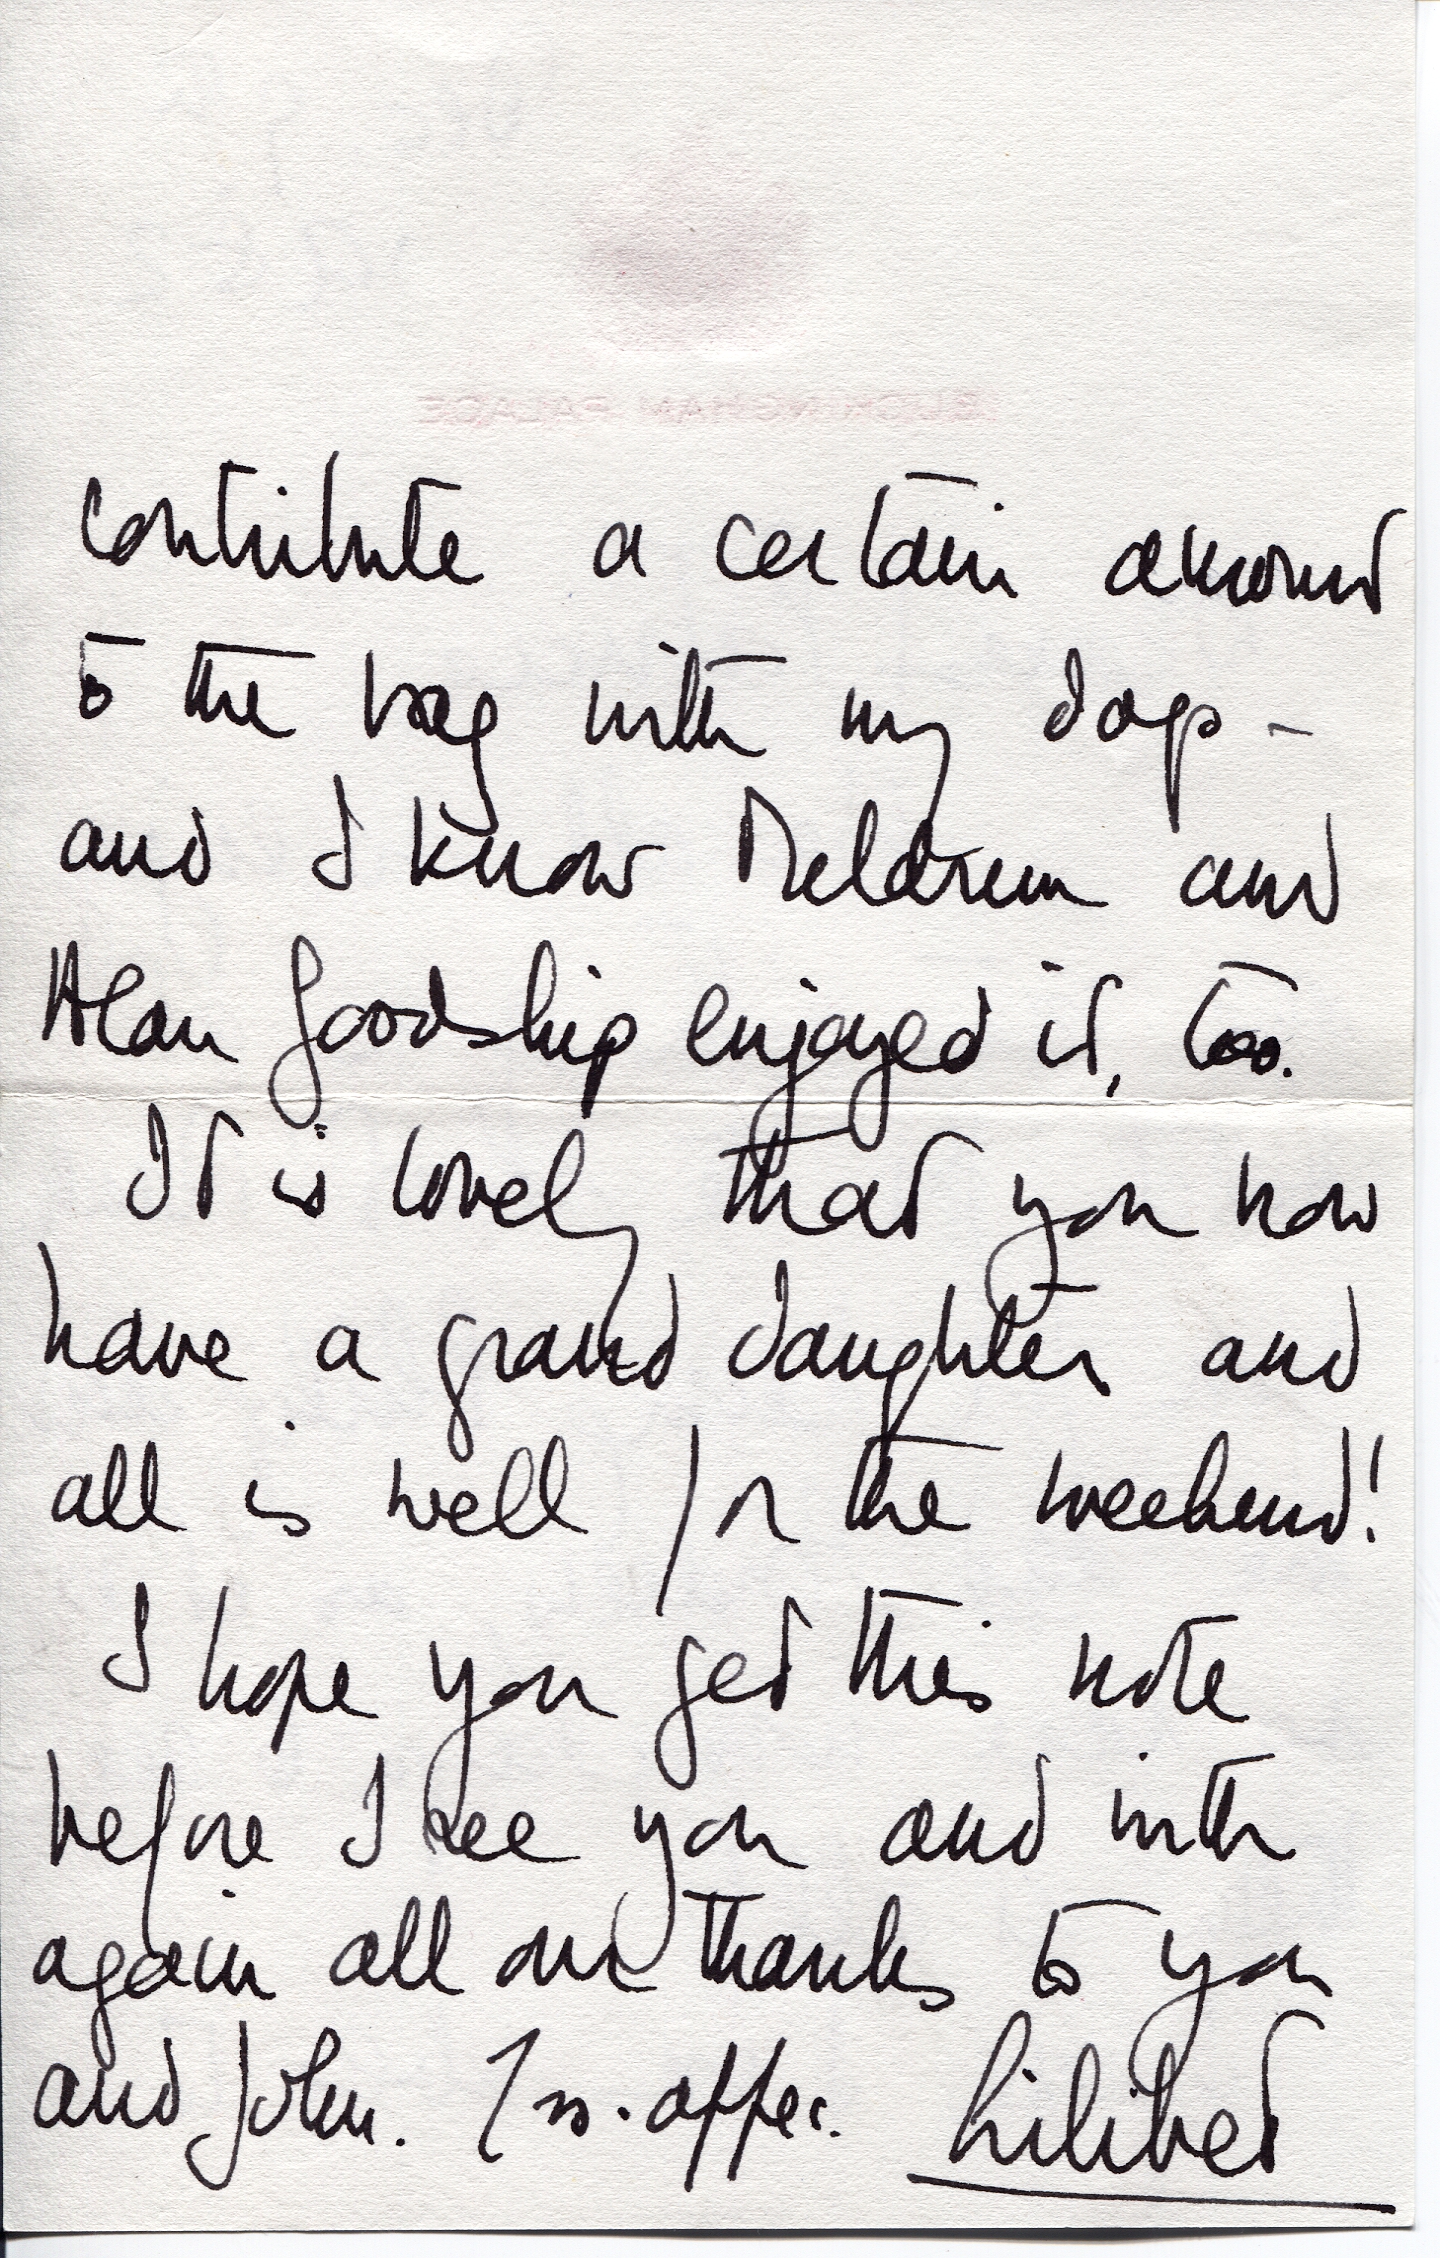 BUCKINGHAM PALACE
contribute a certain amount
to the bag with my dogs -
and I know Meldrum and
Alan Goodship enjoyed it, too.
It is lovely that you now
have a grand daughter and
all is well for the weekend!
I hope you get this note
before I see you and with
again all our thanks to you
and John. Yrs. affec. Lilibet